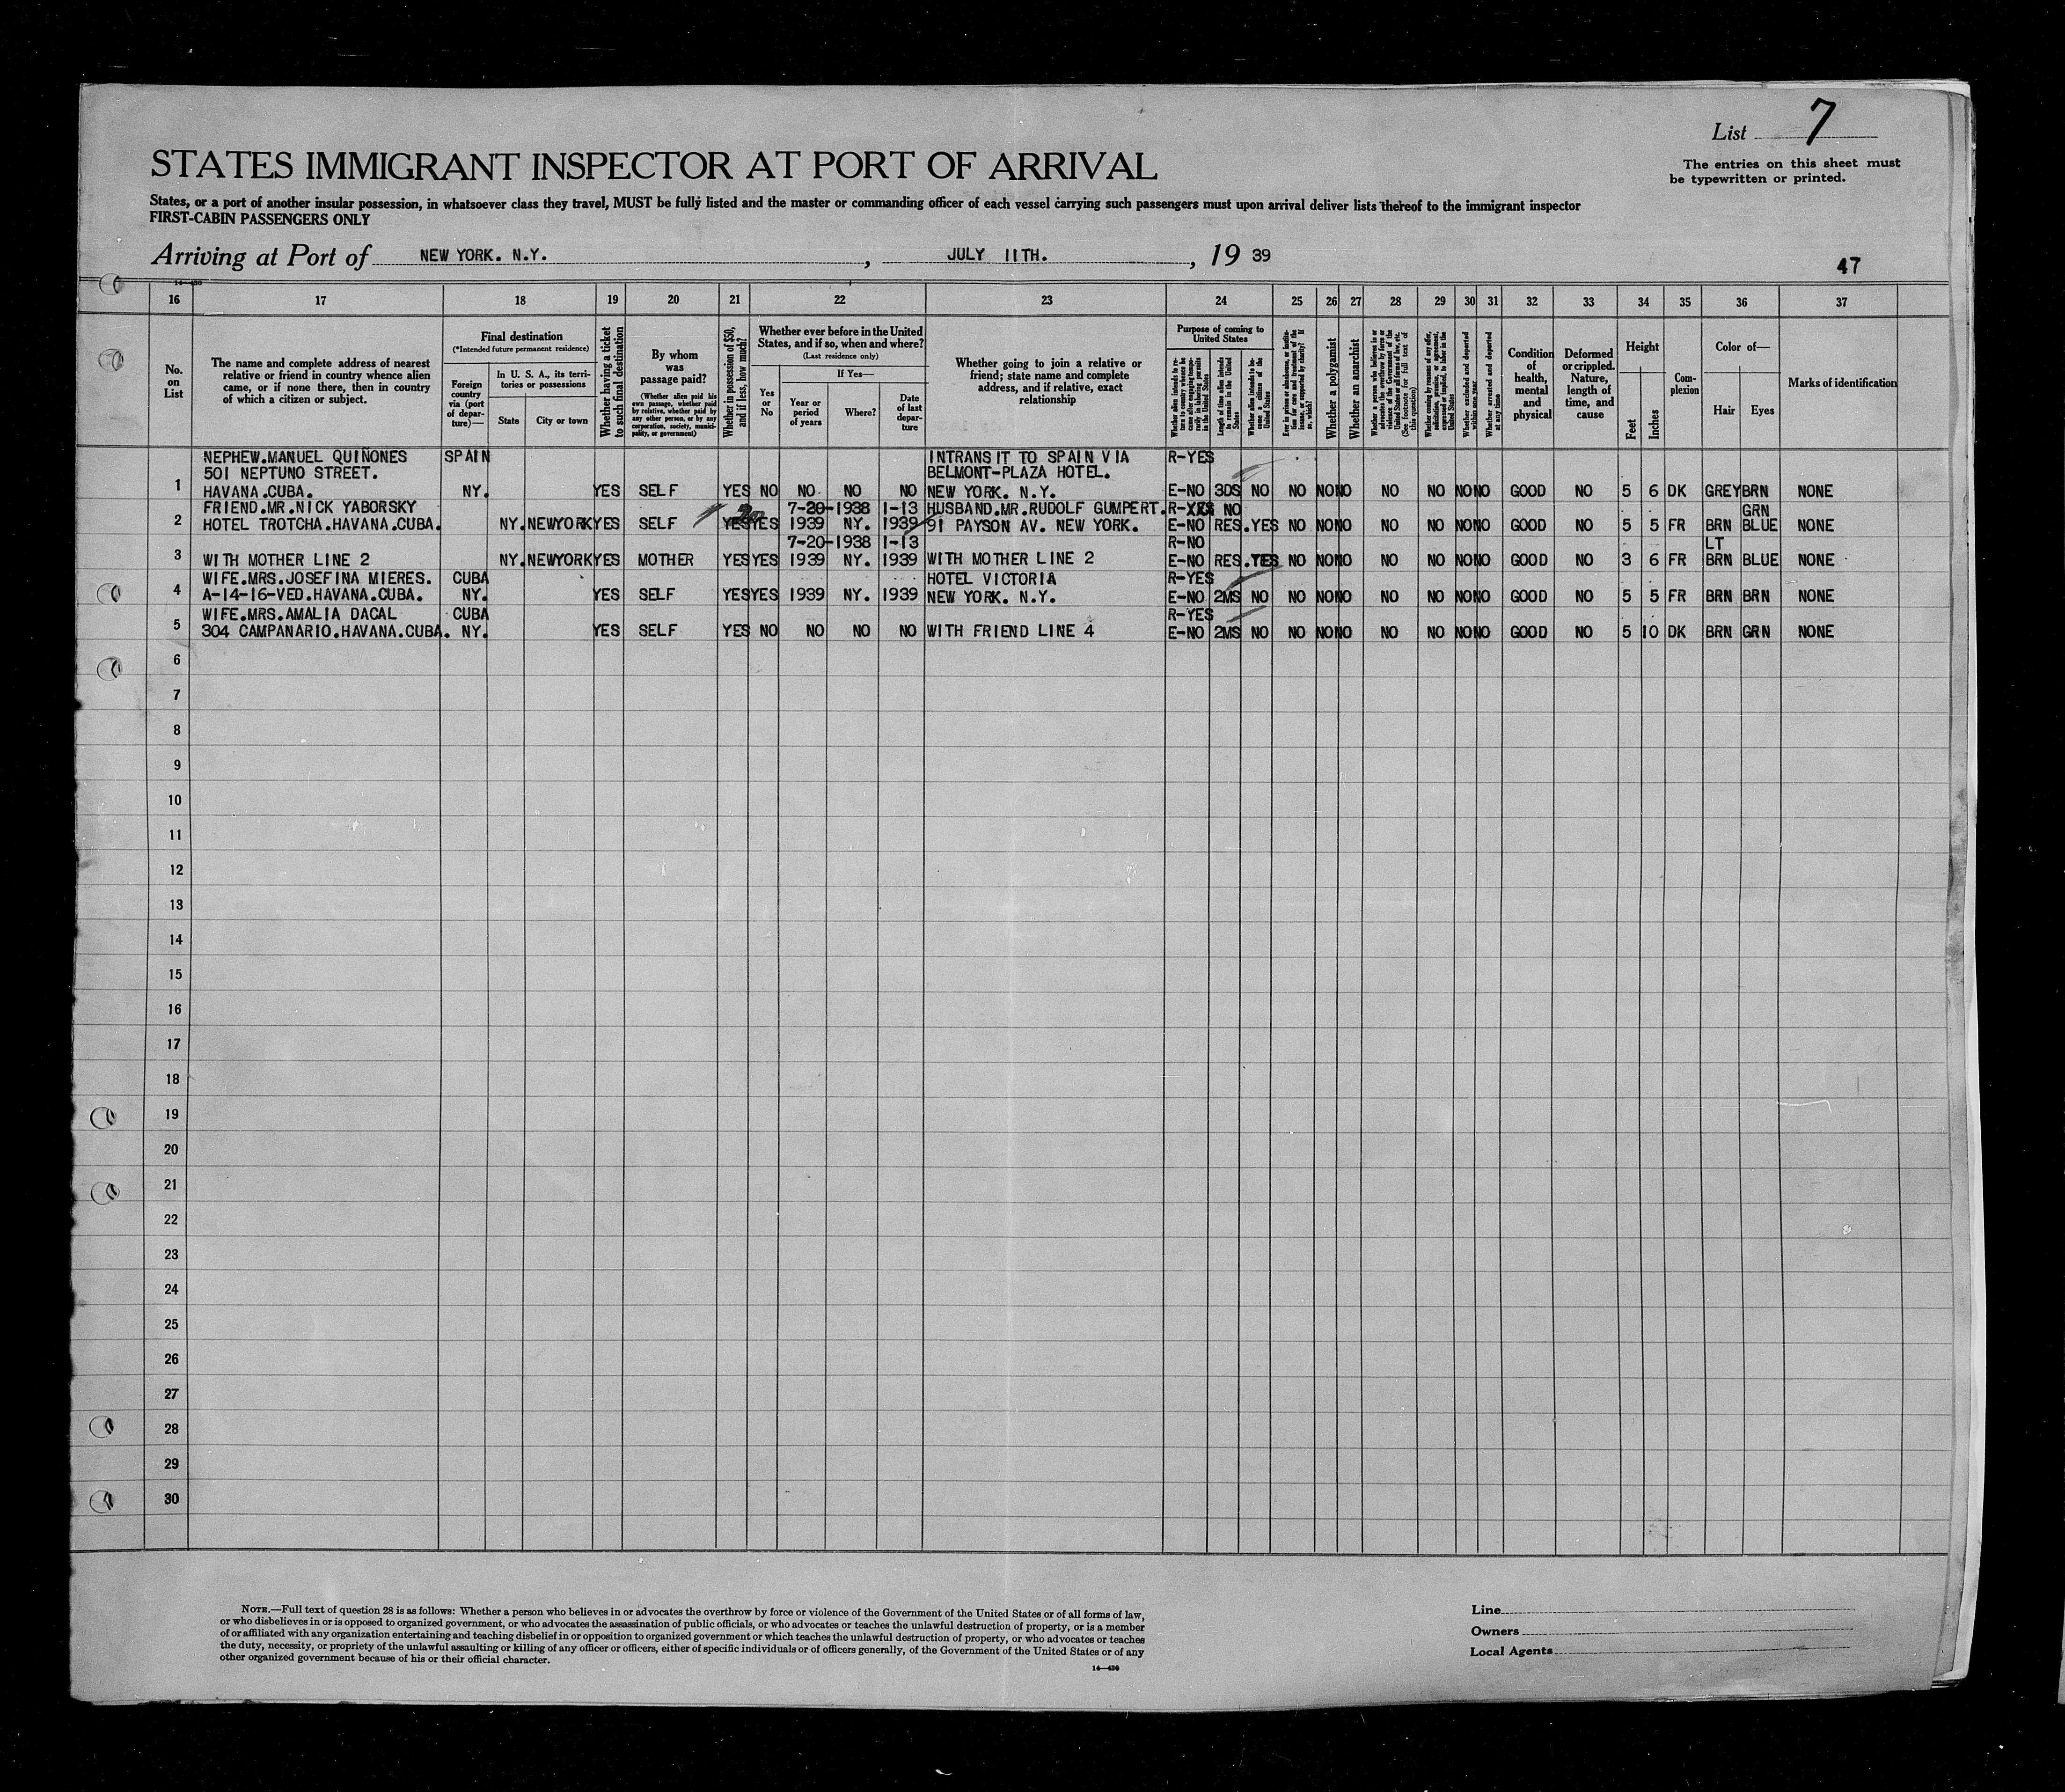 List 7
STATES IMMIGRANT INSPECTOR AT PORT OF ARRIVAL
The entries on this sheet must
be typewritten or printed.
States, or a port of another insular possession, in whatsoever class they travel, MUST be fully listed and the master or commanding officer of each vessel carrying such passengers must upon arrival deliver lists thereof to the immigrant inspector
FIRST-CABIN PASSENGERS ONLY
Arriving at Port of NEW YORK. N.Y. , JULY 11TH. , 19 39
47
14—430
16 17 18 19 20 21 22 23 24 25 26 27 28 29 30 31 32 33 34 35 36 37
No.
on
List
The name and complete address of nearest
relative or friend in country whence alien
came, or if none there, then in country
of which a citizen or subject.
Final destination
(*Intended future permanent residence)
Foreign
country
via (port
of depar-
ture)—
In U. S. A., its terri-
tories or possessions
State
City or town
Whether having a ticket
to such final destination
By whom
was
passage paid?
(Whether alien paid his
own passage, whether paid
by relative, whether paid by
any other person, or by any
corporation, society, munici-
pality, or government)
Whether in possession of $50,
and if less, how much?
Whether ever before in the United
States, and if so, when and where?
(Last residence only)
Yes
or
No
If Yes—
Year or
period
of years
Where?
Date
of last
depar-
ture
Whether going to join a relative or
friend; state name and complete
address, and if relative, exact
relationship
Purpose of coming to
United States
Whether alien intends to re-
turn to country whence he
came after engaging tempo-
rarily in laboring pursuits
in the United States
Length of time alien intends
to remain in the United
States
Whether alien intends to be-
come a citizen of the
United States
Ever in prison or almshouse, or institu-
tion for care and treatment of the
insane, or supported by charity? If
so, which?
Whether a polygamist
Whether an anarchist
Whether a person who believes in or
advocates the overthrow by force or
violence of the Government of the
United States or all forms of law, etc.
(See footnote for full text of
this question)
Whether coming by reason of any offer,
solicitation, promise, or agreement,
expressed or implied, to labor in the
United States
Whether excluded and deported
within one year
Whether arrested and deported
at any time
Condition
of
health,
mental
and
physical
Deformed
or crippled.
Nature,
length of
time, and
cause
Height
Feet
Inches
Com-
plexion
Color of—
Hair
Eyes
Marks of identification
NEPHEW.MANUEL QUIÑONES SPAIN INTRANSIT TO SPAIN VIA R-YES
501 NEPTUNO STREET. BELMONT-PLAZA HOTEL.
1 HAVANA.CUBA. NY. YES SELF YES NO NO NO NO NEW YORK. N.Y. E-NO 3DS NO NO NO NO NO NO NO NO GOOD NO 5 6 DK GREY BRN NONE
FRIEND.MR.NICK YABORSKY 7-20-1938 1-13 HUSBAND.MR.RUDOLF GUMPERT. R-YES NO GRN
2 HOTEL TROTCHA.HAVANA.CUBA. NY. NEWYORK YES SELF YES YES 1939 NY. 1939 91 PAYSON AV. NEW YORK. E-NO RES. YES NO NO NO NO NO NO NO GOOD NO 5 5 FR BRN BLUE NONE
7-20-1938 1-13 R-NO LT
3 WITH MOTHER LINE 2 NY. NEWYORK YES MOTHER YES YES 1939 NY. 1939 WITH MOTHER LINE 2 E-NO RES. YES NO NO NO NO NO NO NO GOOD NO 3 6 FR BRN BLUE NONE
WIFE.MRS.JOSEFINA MIERES. CUBA HOTEL VICTORIA R-YES
4 A-14-16-VED.HAVANA.CUBA. NY. YES SELF YES YES 1939 NY. 1939 NEW YORK. N.Y. E-NO 2MS NO NO NO NO NO NO NO NO GOOD NO 5 5 FR BRN BRN NONE
WIFE.MRS.AMALIA DACAL CUBA R-YES
5 304 CAMPANARIO.HAVANA.CUBA. NY. YES SELF YES NO NO NO NO WITH FRIEND LINE 4 E-NO 2MS NO NO NO NO NO NO NO NO GOOD NO 5 10 DK BRN GRN NONE
6
7
8
9
10
11
12
13
14
15
16
17
18
19
20
21
22
23
24
25
26
27
28
29
30
NOTE.—Full text of question 28 is as follows: Whether a person who believes in or advocates the overthrow by force or violence of the Government of the United States or of all forms of law,
or who disbelieves in or is opposed to organized government, or who advocates the assassination of public officials, or who advocates or teaches the unlawful destruction of property, or is a member
of or affiliated with any organization entertaining and teaching disbelief in or opposition to organized government or which teaches the unlawful destruction of property, or who advocates or teaches
the duty, necessity, or propriety of the unlawful assaulting or killing of any officer or officers, either of specific individuals or of officers generally, of the Government of the United States or of any
other organized government because of his or their official character.
14—430
Line
Owners
Local Agents